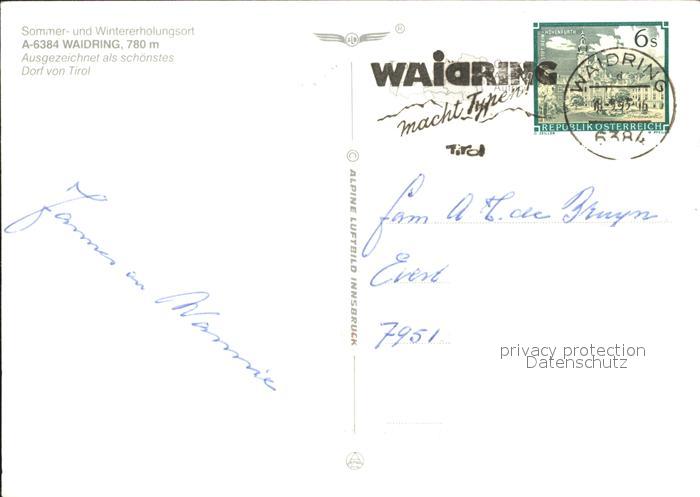 Sommer- und Wintererholungsort
A-6384 WAIDRING, 780 m
Ausgezeichnet als schönstes
Dorf von Tirol
®
WAIDRING
macht Typen!
Tirol
6s
REPUBLIK ÖSTERREICH
WAIDRING
6384
© ALPINE LUFTBILD INNSBRUCK
Fam A de Bruyn
7951
Wannie
privacy protection
Datenschutz